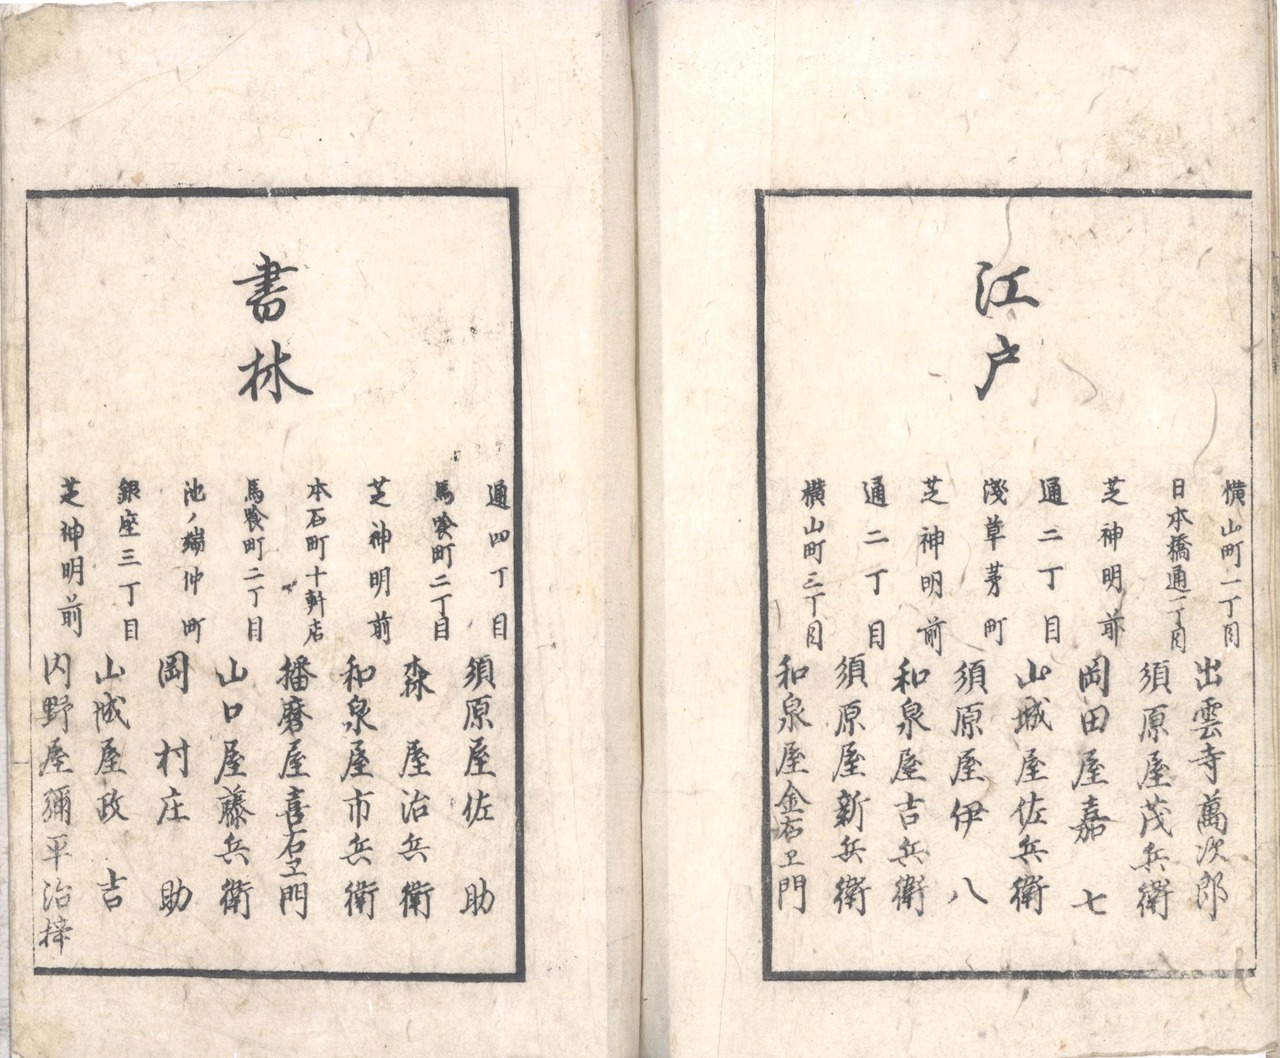 江戸
横山町一丁目 出雲寺萬次郎
日本橋通一丁目 須原屋茂兵衛
芝神明前 岡田屋嘉七
通二丁目 山城屋佐兵衛
淺草茅町 須原屋伊八
芝神明前 和泉屋吉兵衛
通二丁目 須原屋新兵衛
横山町三丁目 和泉屋金右ヱ門
書林
通四丁目 須原屋佐助
馬喰町二丁目 森屋治兵衛
芝神明前 和泉屋市兵衛
本石町十軒店 播磨屋喜右ヱ門
馬喰町二丁目 山口屋藤兵衛
池ノ端仲町 岡村庄助
銀座三丁目 山城屋政吉
芝神明前 内野屋彌平治梓